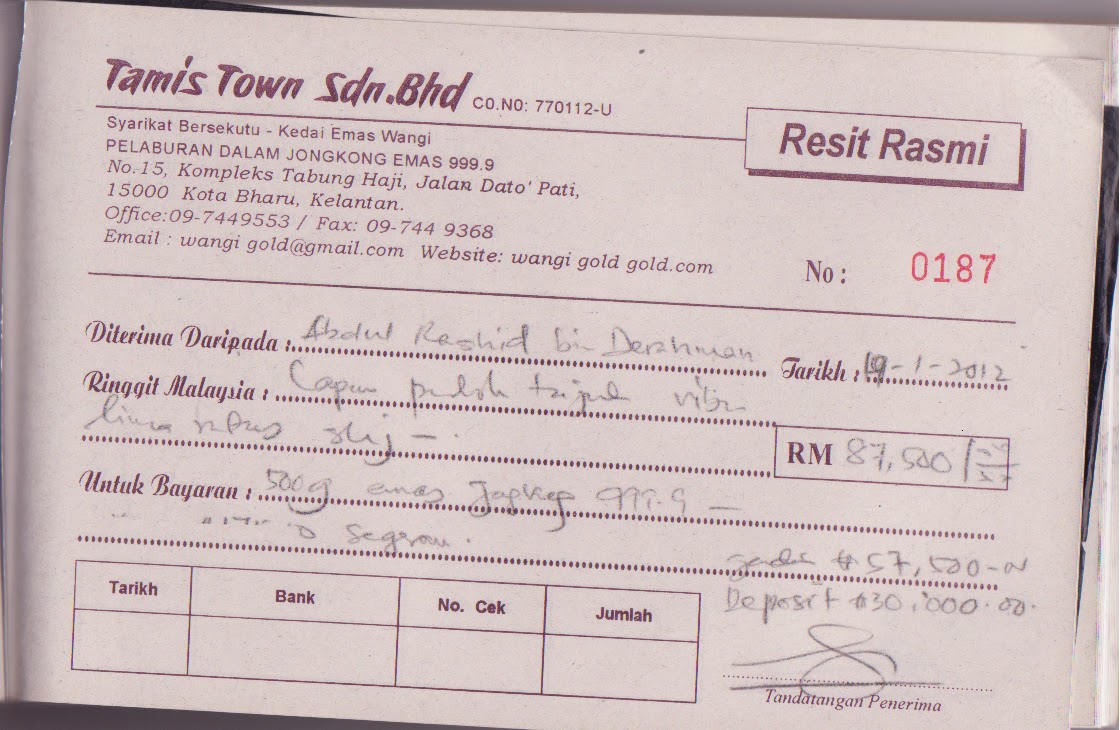 Tamis Town Sdn.Bhd CO.NO: 770112-U
Syarikat Bersekutu - Kedai Emas Wangi
PELABURAN DALAM JONGKONG EMAS 999.9
No.15, Kompleks Tabung Haji, Jalan Dato' Pati,
15000 Kota Bharu, Kelantan.
Office:09-7449553 / Fax: 09-744 9368
Email : wangi gold@gmail.com Website: wangi gold gold.com
Resit Rasmi
No : 0187
Diterima Daripada : Abdul Rashid bin Derahman Tarikh : 19-1-2012
Ringgit Malaysia : Lapan puloh tujuh ribu
lima ratus shj -.
RM 87,500
Untuk Bayaran : 500g emas 999.9 -
57,500
Deposit 30,000.00.
Tarikh Bank No. Cek Jumlah
Tandatangan Penerima